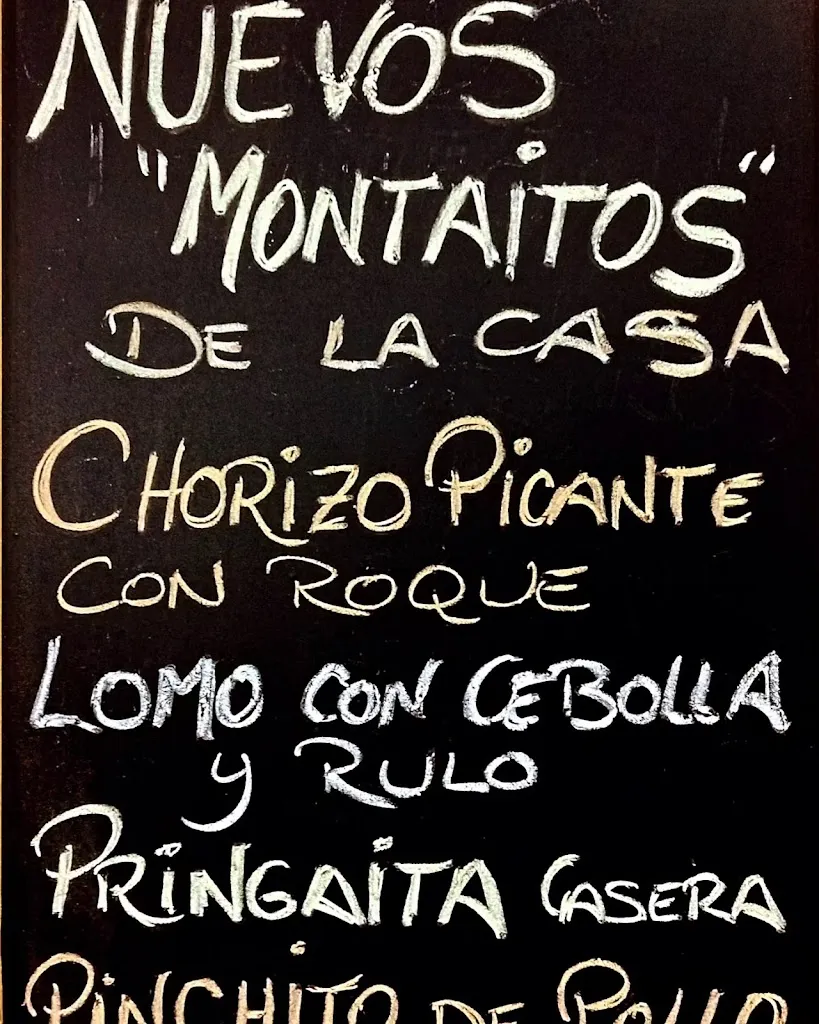 NUEVOS
"MONTAiTOS"
DE LA CASA
CHORiZO PiCANTE
CON ROQUE
LOMO CON CEBOLLA
y RULO
PRiNGAiTA CASERA
PiNCHiTO DE POLLO